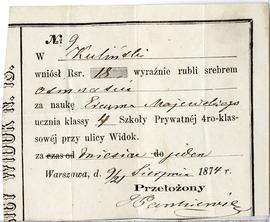 № 9
W Kuliński
wniósł Rsr. 18 wyraźnie rubli srebrem
ośmnaście
za naukę Erazma Majewskiego
ucznia klassy 4 Szkoły Prywatnéj 4ro-klas-
sowéj przy ulicy Widok.
za czas od miesiąc do jeden
Warszawa, d. 9/21 Sierpnia 1874 r.
Przełożony
JPankiewicz
WIDOK N. 15.